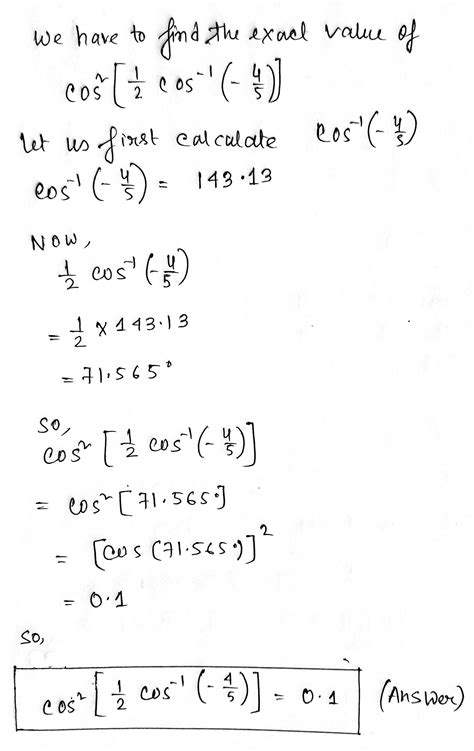 We have to find the exact value of
cos²[1/2 cos⁻¹(-4/5)]
Let us first calculate cos⁻¹(-4/5)
cos⁻¹(-4/5) = 143.13
NOW,
1/2 cos⁻¹(-4/5)
= 1/2 × 143.13
= 71.565°
So,
cos²[1/2 cos⁻¹(-4/5)]
= cos²[71.565°]
= [cos(71.565°)]²
= 0.1
So,
cos²[1/2 cos⁻¹(-4/5)] = 0.1 (Answer)